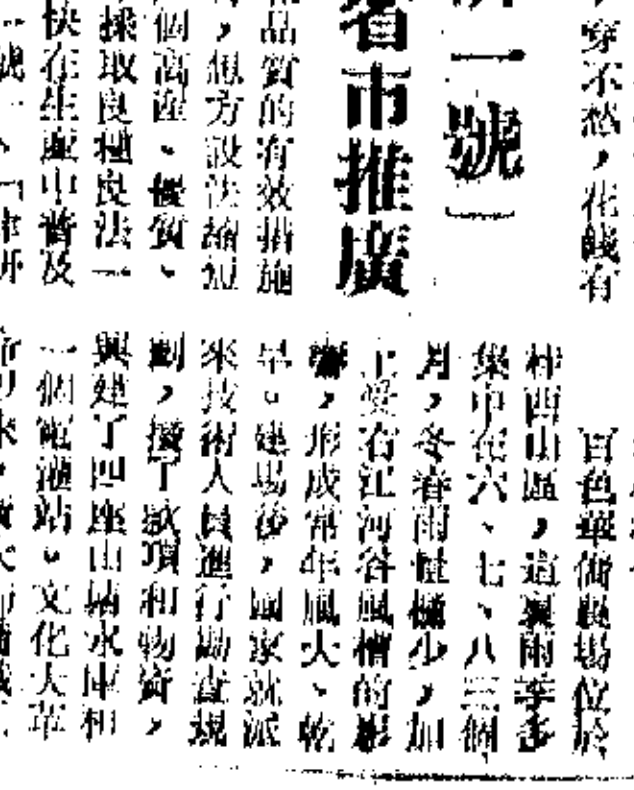 穿不愁，花錢有
一號〕
省市推廣
品質的有效措施
，想方設法縮短
個高産、優質、
採取良種良法一
快在生産中普及
百色華僑農場位於
西山區，這裏雨季多
集中在六、七、八三個
月，冬春雨量極少，加
上受右江河谷風槽的影
響，形成常年風大、乾
旱。建場後，國家就派
來技術人員進行勘査規
劃，撥了欵項和物資，
興建了四座山塘水庫和
一個電灌站。文化大革